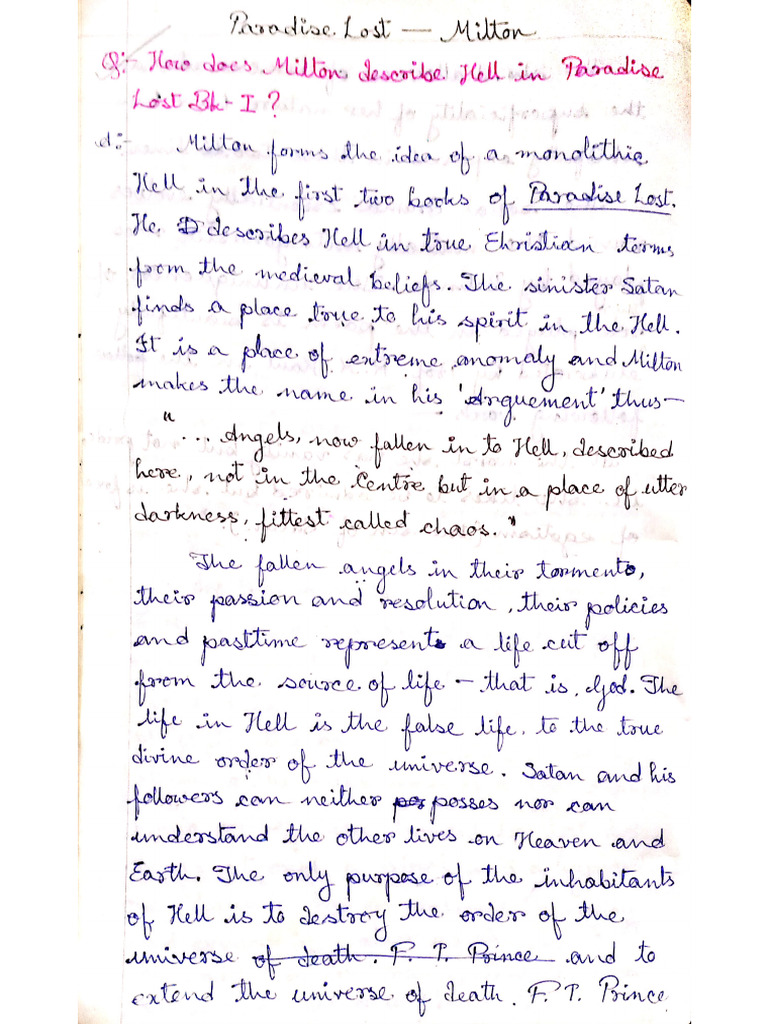 Paradise Lost — Milton
Q:- How does Milton describe Hell in Paradise
Lost Bk-I?
A:- Milton forms the idea of a monolithic
Hell in the first two books of Paradise Lost.
He describes Hell in true Christian terms
from the medieval beliefs. The sinister Satan
finds a place true to his spirit in the Hell.
It is a place of extreme anomaly and Milton
makes the name in his 'Arguement' thus—
"... Angels, now fallen in to Hell, described
here, not in the Centre but in a place of utter
darkness, fittest called chaos."
The fallen angels in their torments,
their passion and resolution, their policies
and pasttime represents a life cut off
from the source of life — that is, God. The
life in Hell is the false life, to the true
divine order of the universe. Satan and his
followers can neither posses nor can
understand the other lives on Heaven and
Earth. The only purpose of the inhabitants
of Hell is to destroy the order of the
universe of death. F. T. Prince and to
extend the universe of death. F. T. Prince